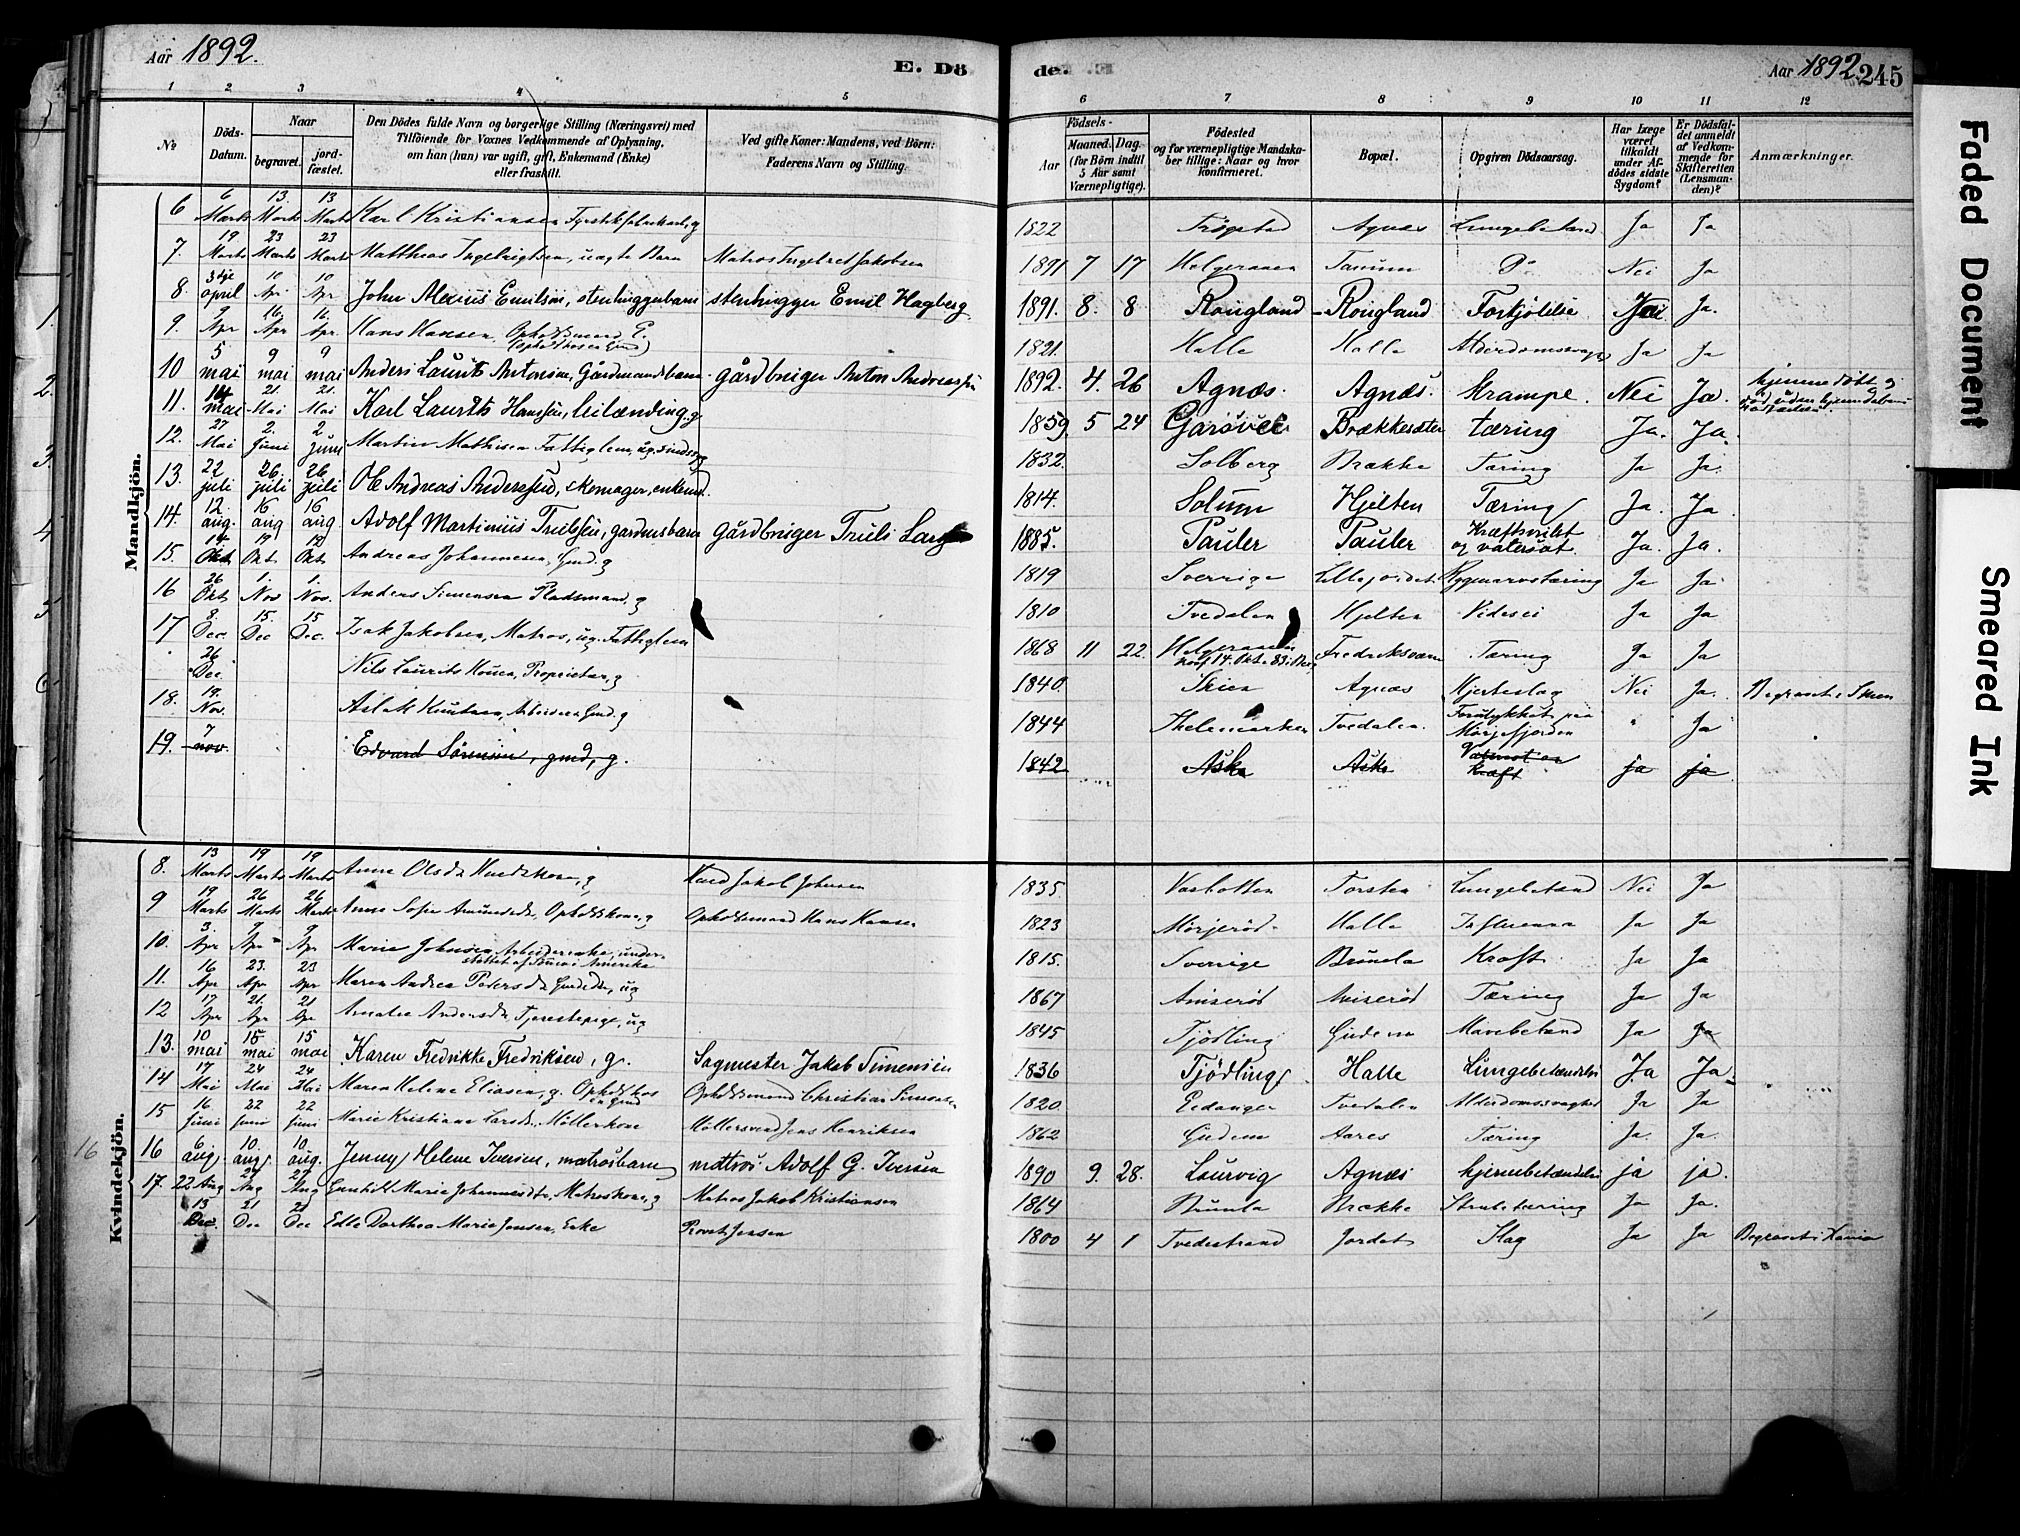 Aar 1892.
E. Dö
de.
Aar 1892 245
1 2 3 4 5
6 7 8 9 10 11 12
№
Döds-
Datum.
Naar
begravet.
jord-
fæstet.
Den Dödes fulde Navn og borgerlige Stilling (Næringsvei) med
Tilföiende for Voxnes Vedkommende af Oplysning,
om han (hun) var ugift, gift, Enkemand (Enke)
eller fraskilt.
Ved gifte Koner: Mandens, ved Börn:
Faderens Navn og Stilling.
Födsels-
Aar
Maaned. Dag.
(for Börn indtil
5 Aar samt
Værnepligtige).
Födested
og for værnepligtige Mandska-
ber tillige: Naar og hvor
konfirmeret.
Bopæl.
Opgiven Dödsaarsag.
Har Læge
været
tilkaldt
under Af-
dödes sidste
Sygdom?
Er Dödsfal-
det anmeldt
af Vedkom-
mende for
Skifteretten
(Lensman-
den)?
Anmærkninger.
Mandkjön.
6 6 Marts 13. Marts 13 Marts Karl Kristiansen g 1822 Trøgstad Agnæs Ja Ja
7. 19 Marts 23 Marts 23 Marts Matthias Ingebrigtsen, uægte Barn Matros Ingebret Jakobsen 1891 7 17 Helgeraaen Tanum Do Nei Ja
8 3dje april 10 Apr 10 Apr John Alexius Emilsen, stenhuggerbarn stenhugger Emil Hagberg 1891. 8. 8 Rougland Rougland Forkjölelse Ja.
9. 9 Apr 16. Apr 16. Apr. Hans Hansen, 1821. Halle Halle Alderdomssvaghed Ja Ja
10 5 mai 9 mai 9 mai Anders Laurits Antonsen, Gårdmandsbarn gårdbruger Anton Andreassen 1892. 4. 26 Agnæs. Agnæs. krampe. Nei Ja. hjemmedöbt
11. 14 mai 21. Mai 21. Mai Karl Laurits Hanssen, leilænding, g. 1859. 5 24 Brækkesæter tæring Ja. Ja.
12. 27 Mai 2. Juni 2 juni Martin Mathisen Fattiglem, ug. 1832. Solberg Brække Tæring Ja Ja.
13. 22 juli 26. juli 26 juli Ole Andreas Anderssen, skomager, enkemd. 1814. Solum Hjelten Tæring Ja. Ja.
14. 12. aug. 16 aug 16 aug. Adolf Martinius Trulssen, gardmsbarn gårdbruger Truls 1885. Pauler Pauler Kræftsvulst og vatersot. Ja. Ja.
15. 14 Okt 19 Okt 19 Okt Andreas Johannesen, Gmd. g 1819 Sverrige Rygmarvstæring Ja Ja
16 26 Okt 1. Nov 1. Nov. Anders Simensen Pladsmand, g 1810 Tvedalen Hjelten Ja Ja
17 8. Dec 15. Dec 15 Dec. Isak Jakobsen, Matros, ug. Fattiglem 1868 11 22. Helgeraaen konf. 14. Okt. 83 Fredriksværn Tæring Ja Ja
26 Dec. Nils Laurits Proprietær, g 1840. Skien Agnæs Hjerteslag Nei Ja. Begravet i Skien
18. 19. Nov. Aslak Knutsen, Arbeider Gmd. g 1844 Thelemarken Tvedalen. Forulykket paa Mörjefjorden " Ja
19. 7 nov. Edvard Sörensen, gmd, g. 1842 Aske Aske ja ja
Kvindekjön.
8. 13 Marts 19 Marts 19 Marts Anna g Jakob Johnsen 1835. Vasbotten Torsten Lungebetænd Nei Ja
9 19 Marts 26 Marts 26 Marts Anne Sofie Opholdskone, g Opholdsmand Hans Hansen 1823 Mörjeröd Halle Influenza Ja Ja
10. 3. Apr 9 Apr 9 Apr Marie Johnsen Arbeiderenke, under- støttet af Sönner i Amerika 1815. Sverrige Brunla Kræft Ja Ja
11. 16 Apr 23. Apr 23 Apr Maren Andrea Pedersdt. ug 1867 Amiseröd Amiseröd Tæring Ja Ja
12 17 Apr 21. Apr 21 Apr Amalie Andersdt. Tjenestepige, ug 1845 Tjödling Gudem Mavebetænd Ja Ja
13. 10 mai 15 mai 15 mai Karen Fredrikke Fredriksen, g. Sagmester Jakob Simensen 1836 Tjödling Halle Lungebetændelse Ja Ja
14 17 Mai 24 Mai 24 Mai Maren Helene Eliasen, g. Opholdskone Opholdsmand Christian Simonsen 1820 Eidanger Tvedalen Alderdomssvaghed Ja Ja
15 16 Juni 22 Juni 22 Juni Marie Kristiane Larsdt. Möllerkone Möllersvend Jens Henriksen 1862 Gudem Aares Tæring Ja. Ja.
16 16 6 aug. 10. aug. 10. aug. Jenny Helene Iversen, matrosbarn matros Adolf G. Iversen 1890 9. 28. Laurvig Agnæs hjernebetændelse ja ja.
17. 22 Aug 27 Aug 27 Aug Gunhild Marie Johannesdt. Matroskone, g Matros Jakob Kristiansen 1864 Brunla Brække Strubetæring Ja Ja.
13 Dec. 21 Dec 21 Dec Edle Dorthea Marie Jensen, Enke Provst Jensen 1800 4 1 Tvedestrand Jordet Slag Ja Ja Begravet i
Faded Document
Smeared Ink